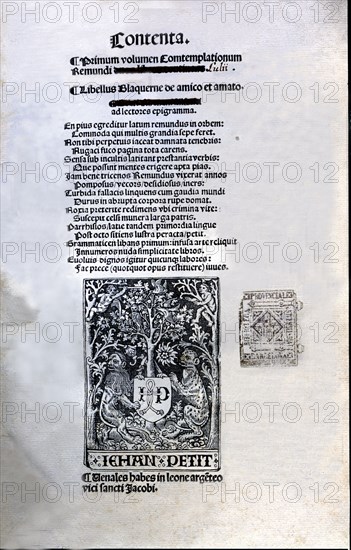 Contenta.
¶ Primum volumen Contemplationum
Remundi Lulii
¶ Libellus Blaquerne de amico et amato.
ad lectores epigramma.
En pius egreditur latum remundus in orbem:
Commoda qui multis grandia sepe feret.
Non tibi perpetuis iaceat damnata tenebris:
Rugaci fuco pagina tota carens.
Sensa sub incultis laritant prestantia verbis:
Que possint mentes erigere apta pias.
Jam bene tricenos Remundus vixerat annos
Pomposus/vecors/desidiosus/iners:
Turbida fallacis linquens cum gaudia mundi
Durus in abrupta corpora rupe domat.
Noxia preterite redimens ubi crimina vite:
Suscepit celsi munera larga patris.
Parrhisios/latue tandem primordia lingue
Post octo sitiens lustra peracta/petit.
Grammaticen libans primum: infusa arte reliquit
Innumeros nuda simplicitate libros.
Evoluis dignos igitur quicunque labores:
Fac prece (quotquot opus restituere) iuues.
I P
IEHAN PETIT
¶ Venales habes in leone argēteo
vici sancti Jacobi.
PROVINCIAL
BARCELONA